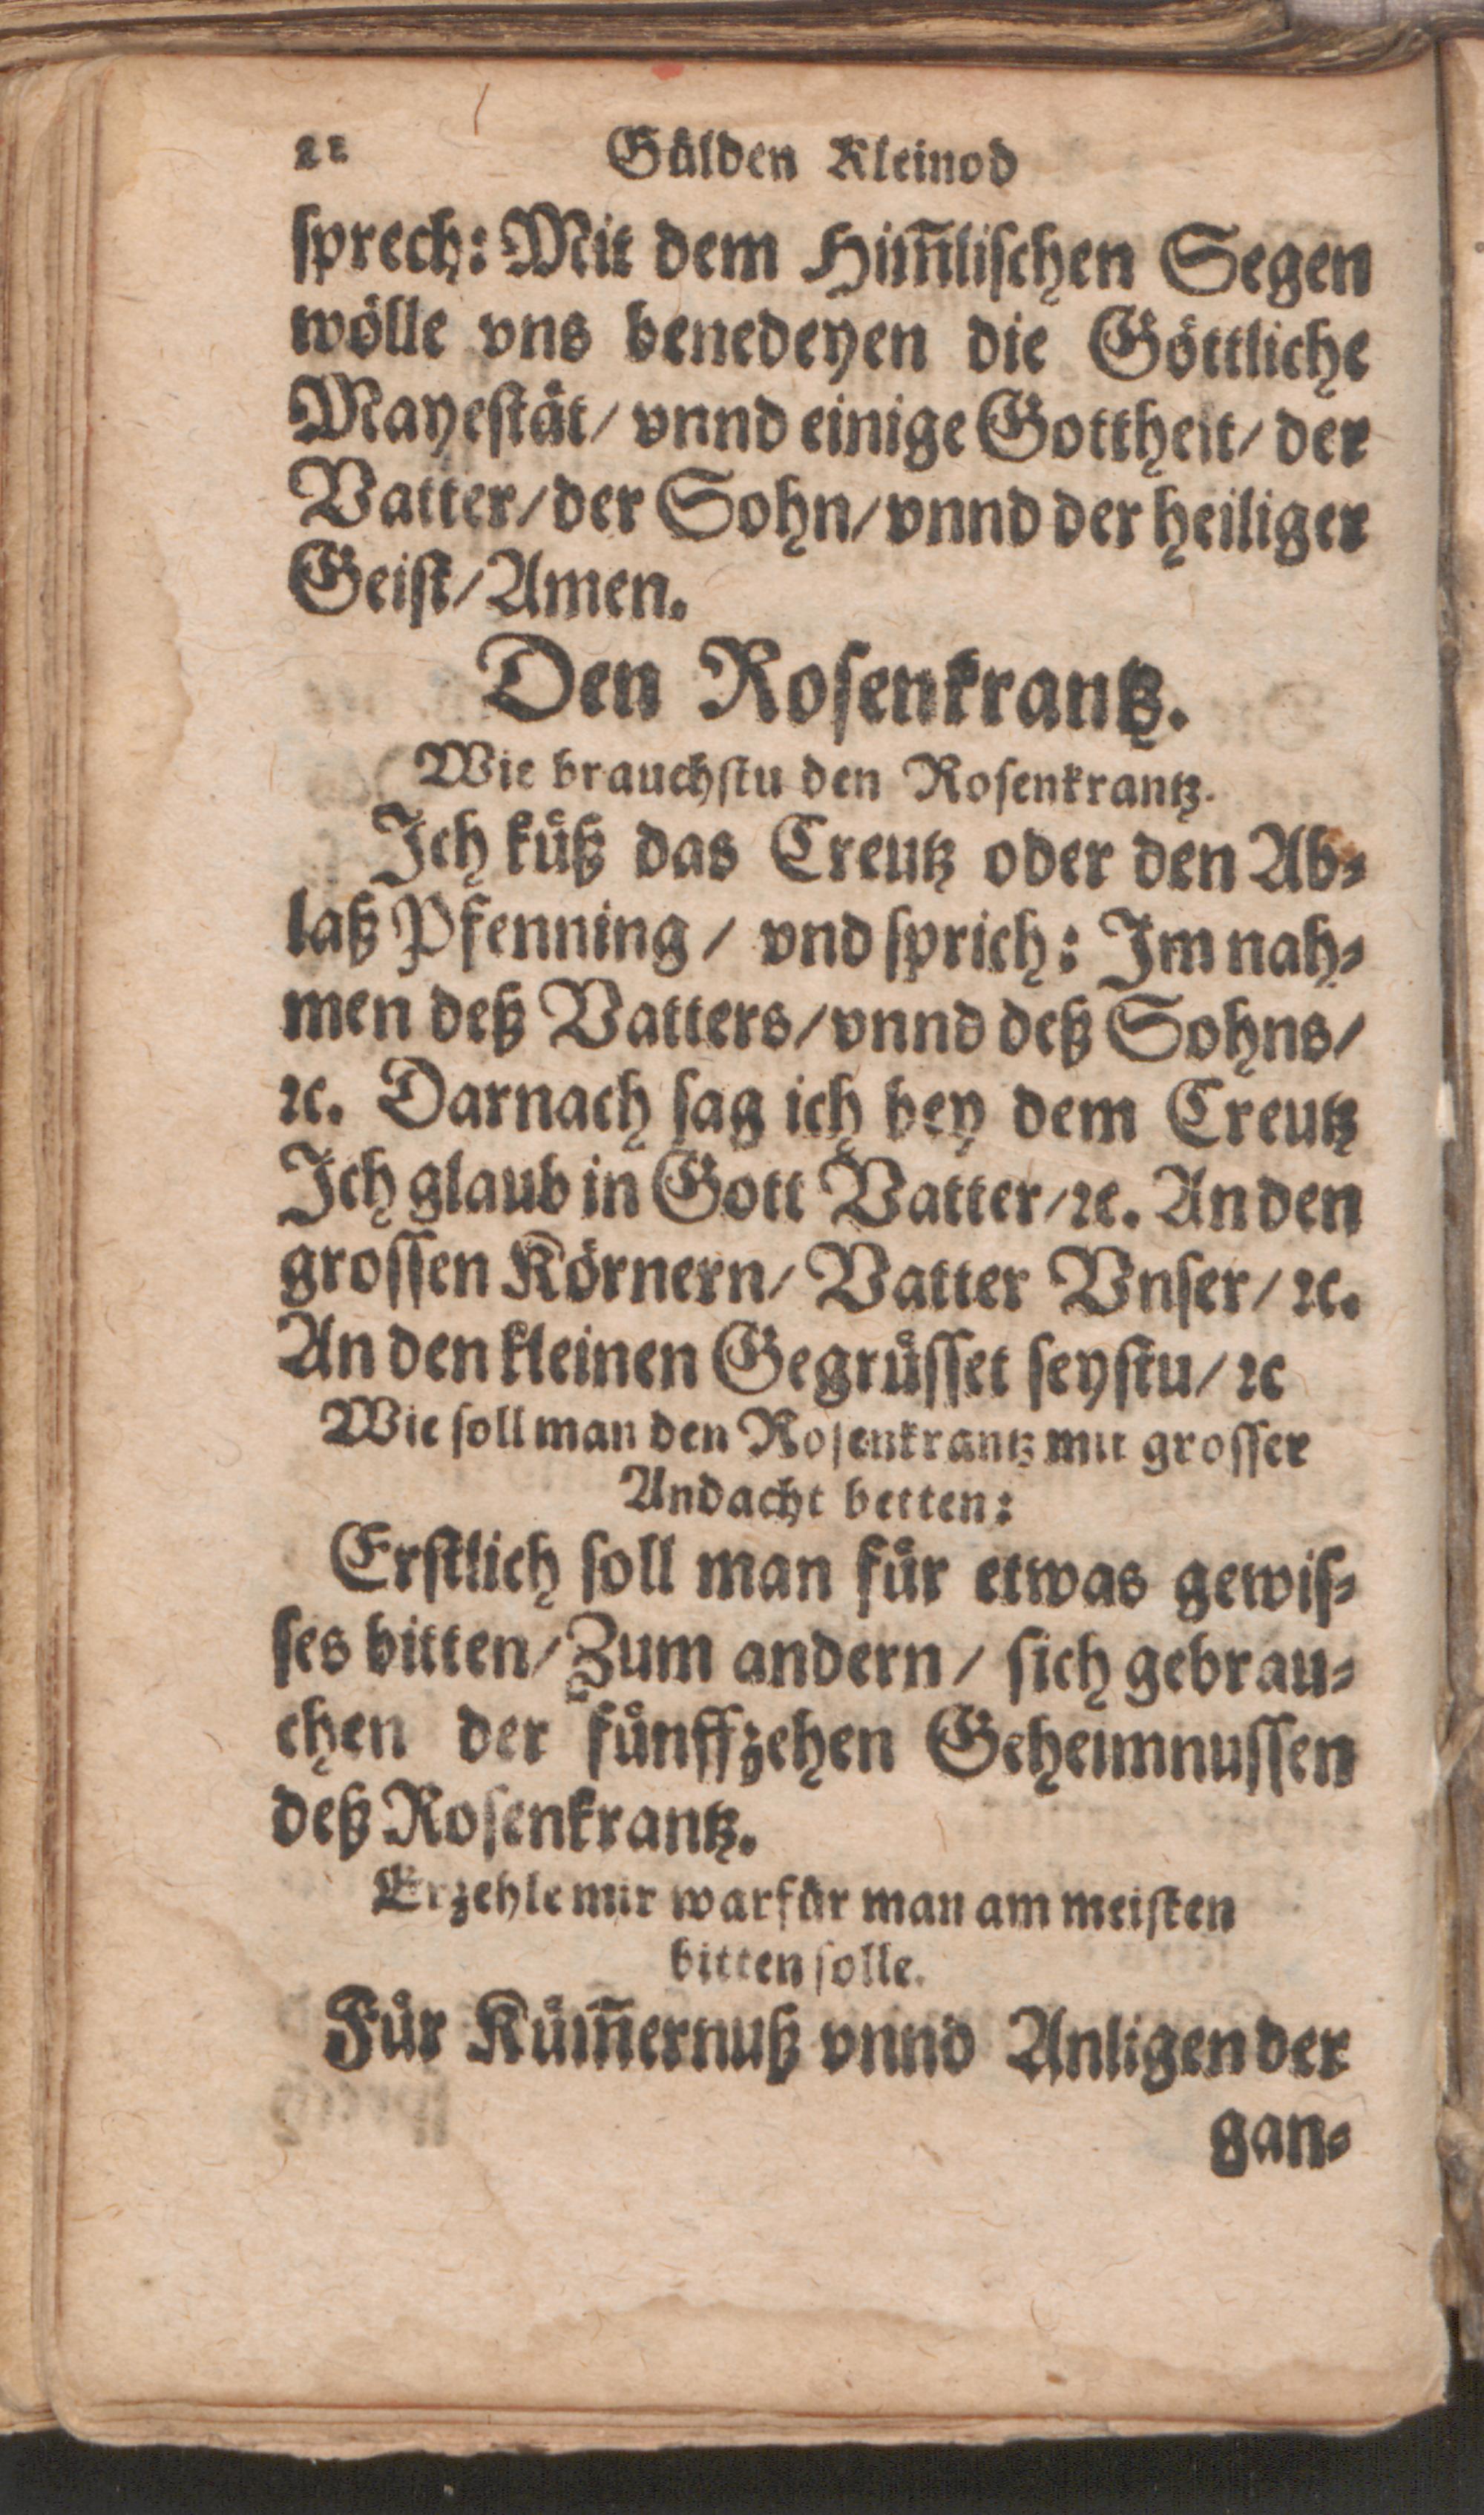 22 Gülden Kleinod
sprech: Mit dem Him̃lischen Segen
wölle vns benedeyen die Göttliche
Mayestät/ vnnd einige Gottheit/ der
Vatter/ der Sohn/ vnnd der heiliger
Geist/ Amen.
Den Rosenkrantz.
Wie brauchstu den Rosenkrantz.
Ich küß das Creutz oder den Ab-
laß Pfenning/ vnd sprich: Im nah-
men deß Vatters/ vnnd deß Sohns/
ꝛc. Darnach sag ich bey dem Creutz
Ich glaub in Gott Vatter/ ꝛc. An den
grossen Körnern/ Vatter Vnser/ ꝛc.
An den kleinen Gegrüsset seystu/ ꝛc
Wie soll man den Rosenkrantz mit grosser
Andacht betten:
Erstlich soll man für etwas gewis-
ses bitten/ Zum andern/ sich gebrau-
chen der fünffzehen Geheimnussen
deß Rosenkrantz.
Erzehle mir warfür man am meisten
bitten solle.
Für Küm̃ernuß vnnd Anligen der
gan-